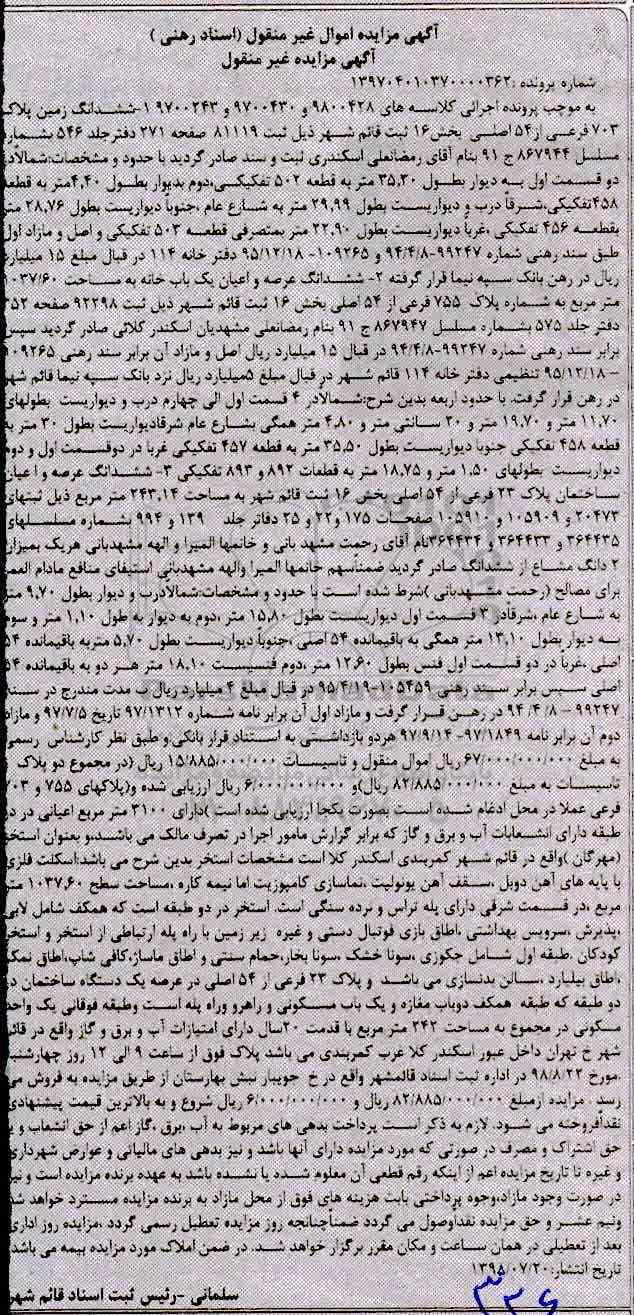 آگهی مزایده اموال غیر منقول (اسناد رهنی )
آگهی مزایده غیر منقول
شماره پرونده :۱۳۹۷۰۴۰۱۰۳۷۰۰۰۰۳۶۲
به موجب پرونده اجرائی کلاسه های ۹۸۰۰۴۲۸ و ۹۷۰۰۴۳۰ و ۹۷۰۰۲۴۳ ۱-ششدانگ زمین پلاک
۷۰۳ فرعی از۵۴ اصلی بخش۱۶ ثبت قائم شهر ذیل ثبت ۸۱۱۱۹ صفحه ۲۷۱ دفترجلد ۵۴۶ بشماره
مسلسل ۸۶۷۹۴۴ ج ۹۱ بنام آقای رمضانعلی اسکندری ثبت و سند صادر گردید با حدود و مشخصات:شمالاً،در
دو قسمت اول به دیوار بطول ۳۵,۲۰ متر به قطعه ۵۰۲ تفکیکی،دوم بدیوار بطول ۴,۴۰متر به قطعه
۴۵۸تفکیکی،شرقاً درب و دیواریست بطول ۲۹,۹۹ متر به شارع عام ،جنوباً دیواریست بطول ۲۸,۷۶ متر
بقطعه ۴۵۶ تفکیکی ،غرباً دیواریست بطول ۲۲,۹۰ متر بمتصرفی قطعه ۵۰۳ تفکیکی و اصل و مازاد اول
طبق سند رهنی شماره ۹۹۲۴۷-۹۴/۴/۸ و ۱۰۹۲۶۵- ۹۵/۱۲/۱۸ دفتر خانه ۱۱۴ در قبال مبلغ ۱۵ میلیارد
ریال در رهن بانک سپه نیما قرار گرفته ۲- ششدانگ عرصه و اعیان یک باب خانه به مساحت ۱۰۳۷/۶۰
متر مربع به شماره پلاک ۷۵۵ فرعی از ۵۴ اصلی بخش ۱۶ ثبت قائم شهر ذیل ثبت ۹۲۲۹۸ صفحه ۲۵۲
دفتر جلد ۵۷۵ بشماره مسلسل ۸۶۷۹۴۷ ج ۹۱ بنام رمضانعلی مشهدیان اسکندر کلائی صادر گردید سپس
برابر سند رهنی شماره ۹۹۲۴۷-۹۴/۴/۸ در قبال ۱۵ میلیارد ریال اصل و مازاد آن برابر سند رهنی ۱۰۹۲۶۵
– ۹۵/۱۲/۱۸ تنظیمی دفتر خانه ۱۱۴ قائم شهر در قبال مبلغ ۵میلیارد ریال نزد بانک سپه نیما قائم شهر
در رهن قرار گرفت. با حدود اربعه بدین شرح:شمالاًدر ۴ قسمت اول الی چهارم درب و دیواریست بطولهای
۱۱,۷۰ متر و ۱۹,۷۰ متر و ۲۰ سانتی متر و ۴,۸۰ متر همگی بشارع عام شرقادیواریست بطول ۳۰ متر به
قطعه ۴۵۸ تفکیکی جنوبا دیواریست بطول ۳۵,۵۰ متر به قطعه ۴۵۷ تفکیکی غربا در دوقسمت اول و دوم
دیواریست بطولهای ۱,۵۰ متر و ۱۸,۷۵ متر به قطعات ۸۹۲ و ۸۹۳ تفکیکی ۳- ششدانگ عرصه و اعیان
ساختمان پلاک ۲۳ فرعی از ۵۴ اصلی بخش ۱۶ ثبت قائم شهر به مساحت ۲۴۳,۱۴ متر مربع ذیل ثبتهای
۲۰۴۷۳ و ۱۰۵۹۰۹ و ۱۰۵۹۱۰ صفحات ۱۷۵و ۲۲ و ۲۵ دفاتر جلد ۱۳۹ و ۹۹۴ بشماره مسلسلهای
۳۶۴۴۳۵ و ۳۶۴۴۳۳ و ۳۶۴۴۳۴نام آقای رحمت مشهد بانی و خانمها المیرا و الهه مشهدبانی هریک بمیزان
۲ دانگ مشاع از ششدانگ صادر گردید ضمناًسهم خانمها المیرا والهه مشهدبانی استیفای منافع مادام العمر
برای مصالح (رحمت مشهدبانی )شرط شده است با حدود و مشخصات:شمالاًدرب و دیوار بطول ۹,۷۰ متر
به شارع عام ،شرقاًدر ۳ قسمت اول دیواریست بطول ۱۵,۸۰ متر ،دوم به دیوار به طول ۱,۱۰ متر و سوم
به دیوار بطول ۱۳,۱۰ متر همگی به باقیمانده ۵۴ اصلی ،جنوباً دیواریست بطول ۵,۷۰ متربه باقیمانده ۵۴
اصلی ،غرباً در دو قسمت اول فنس بطول ۱۲,۶۰ متر ،دوم فنسیست ۱۸,۱۰ متر هر دو به باقیمانده ۵۴
اصلی سپس برابر سند رهنی ۱۰۵۴۵۹-۹۵/۴/۱۹ در قبال مبلغ ۴ میلیارد ریال ب مدت مندرج در سند
۹۹۲۴۷ – ۹۴/۴/۸ در رهن قرار گرفت و مازاد اول آن برابر نامه شماره ۹۷/۱۳۱۲ تاریخ ۹۷/۷/۵ و مازاد
دوم آن برابر نامه ۹۷/۱۸۴۹- ۹۷/۹/۱۴ هردو بازداشتی به استناد قرار بانکی.و طبق نظر کارشناس رسمی
به مبلغ ۶۷/۰۰۰/۰۰۰/۰۰۰ ریال اموال منقول و تاسیسات ۱۵/۸۸۵/۰۰۰/۰۰۰ ریال (در مجموع دو پلاک
تاسیسات به مبلغ ۸۲/۸۸۵/۰۰۰/۰۰۰ ریال)و ۶/۰۰۰/۰۰۰/۰۰۰ ریال ارزیابی شده و(پلاکهای ۷۵۵ و ۷۰۳
فرعی عملا در محل ادغام شده است بصورت یکجا ارزیابی شده است )دارای ۳۱۰۰ متر مربع اعیانی در دو
طبقه دارای انشعابات آب و برق و گاز که برابر گزارش مامور اجرا در تصرف مالک می باشند،و بعنوان استخر
(مهرگان )واقع در قائم شهر کمربندی اسکندر کلا است مشخصات استخر بدین شرح می باشد:اسکلت فلزی
با پایه های آهن دوبل ،سقف آهن یونولیت ،نماسازی کامپوزیت اما نیمه کاره ،مساحت سطح ۱۰۳۷,۶۰ متر
مربع ،در قسمت شرقی دارای پله تراس و نرده سنگی است. استخر در دو طبقه است که همکف شامل لابی
،پذیرش ،سرویس بهداشتی ،اطاق بازی فوتبال دستی و غیره زیر زمین با راه پله ارتباطی از استخر و استخر
کودکان .طبقه اول شامل جکوزی ،سونا خشک ،سونا بخار،حمام سنتی و اطاق ماساژ،کافی شاپ،اطاق نمک
،اطاق بیلیارد ،سالن بدنسازی می باشد و پلاک ۲۳ فرعی از ۵۴ اصلی در عرصه یک دستگاه ساختمان در
دو طبقه که طبقه همکف دوباب مغازه و یک باب مسکونی و راهرو وراه پله است وطبقه فوقانی یک واحد
مسکونی در مجموع به مساحت ۲۴۲ متر مربع با قدمت ۲۰سال دارای امتیازات آب و برق و گاز واقع در قائم
شهر خ تهران داخل عبور اسکندر کلا غرب کمربندی می باشد پلاک فوق از ساعت ۹ الی ۱۲ روز چهارشنبه
.مورخ ۹۸/۸/۲۲ در اداره ثبت اسناد قائمشهر واقع در خ جویبار نبش بهارستان از طریق مزایده به فروش می
رسد . مزایده ازمبلغ ۸۲/۸۸۵/۰۰۰/۰۰۰ ریال و ۶/۰۰۰/۰۰۰/۰۰۰ ریال شروع و به بالاترین قیمت پیشنهادی
نقداًفروخته می شود. لازم به ذکر است پرداخت بدهی های مربوط به آب ،برق ،گاز اعم از حق انشعاب و یا
حق اشتراک و مصرف در صورتی که مورد مزایده دارای آنها باشد و نیز بدهی های مالیاتی و عوارض شهرداری
و غیره تا تاریخ مزایده اعم از اینکه رقم قطعی آن معلوم شده یا نشده باشد به عهده برنده مزایده است و نیز
در صورت وجود مازاد،وجوه پرداختی بابت هزینه های فوق از محل مازاد به برنده مزایده مسترد خواهد شد
ونیم عشر و حق مزایده نقداًوصول می گردد ضمناًچنانچه روز مزایده تعطیل رسمی گردد ،مزایده روز اداری
بعد از تعطیلی در همان ساعت و مکان مقرر برگزار خواهد شد. در ضمن املاک مورد مزایده بیمه می باشد.
تاریخ انتشار:۱۳۹۸/۰۷/۲۰
سلمانی -رئیس ثبت اسناد قائم شهر